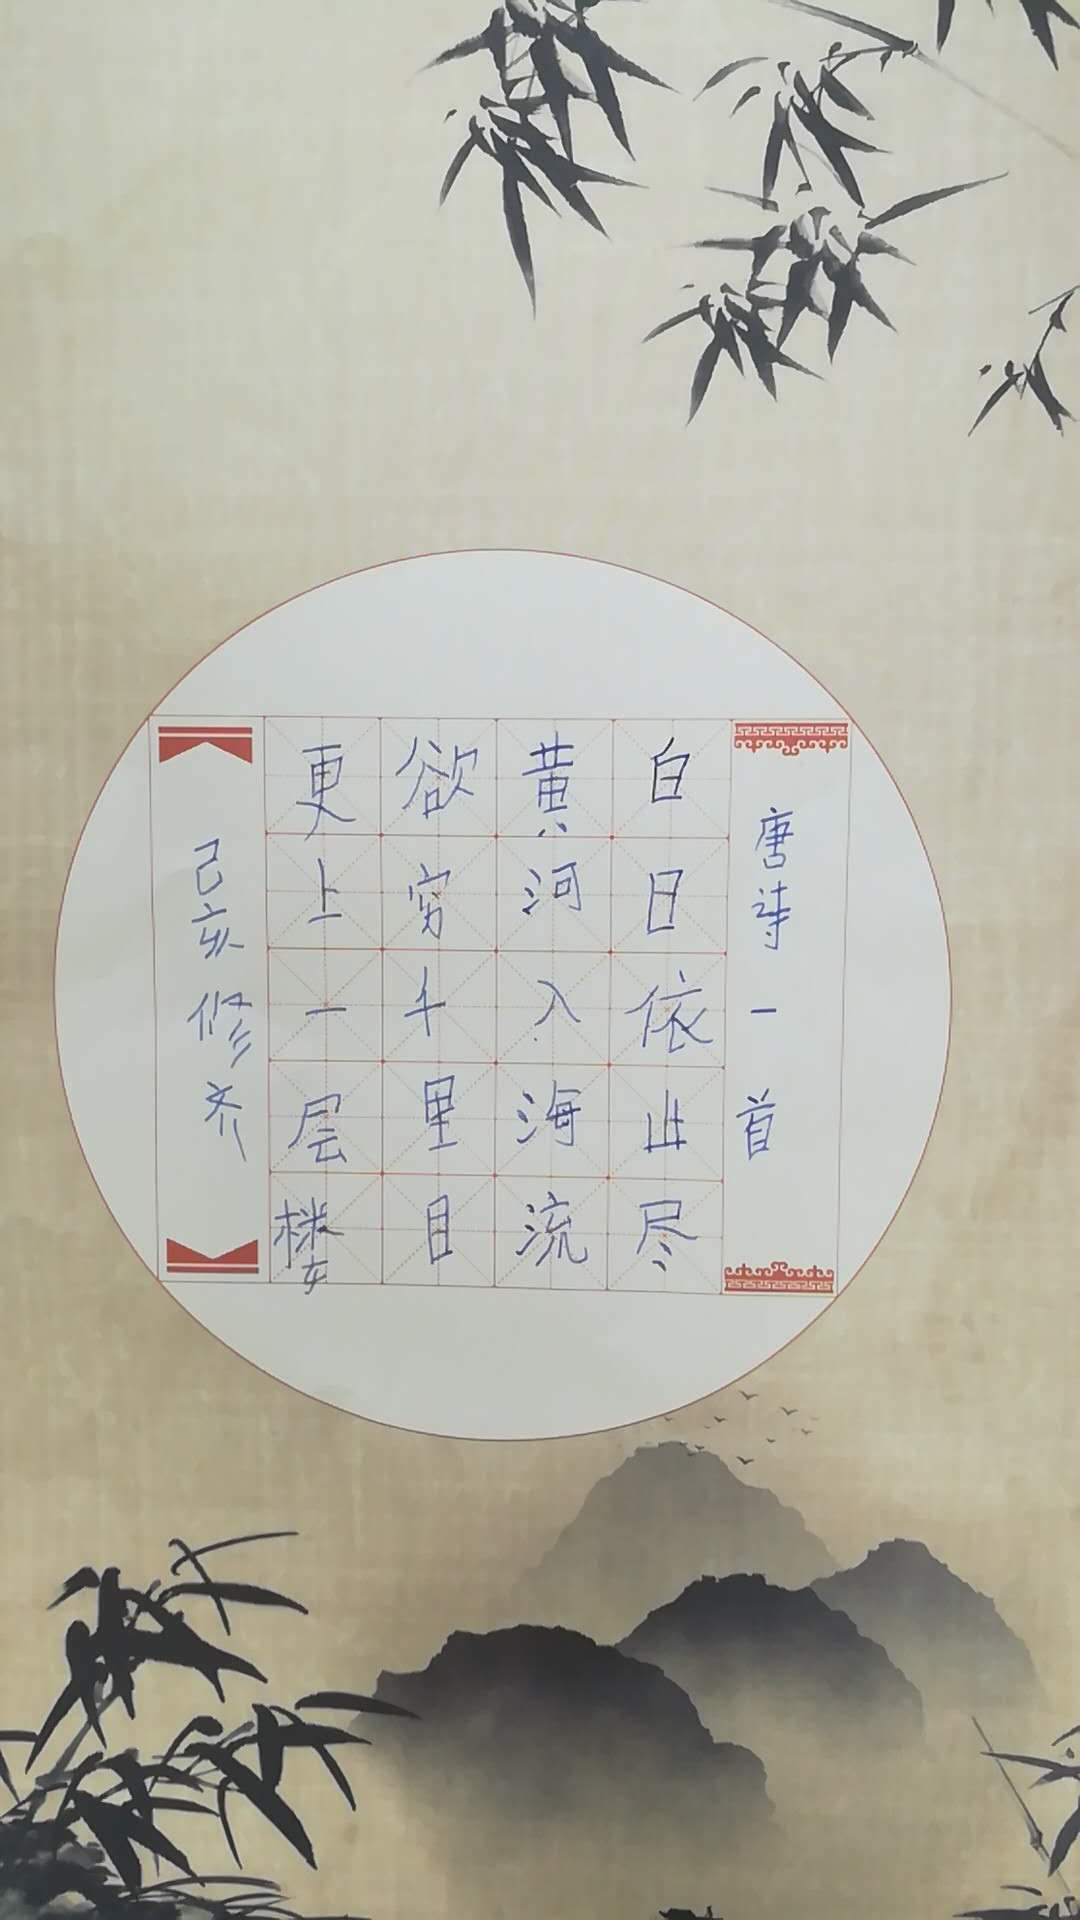 唐诗一首
白日依山尽
黄河入海流
欲穷千里目
更上一层楼
己亥修齐